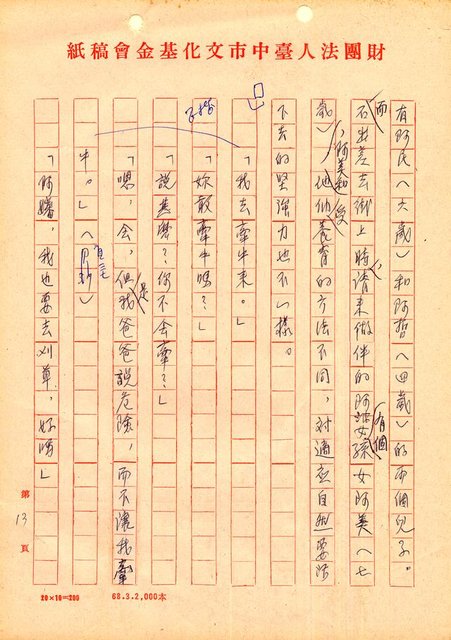 財團法人臺中市文化基金會稿紙
有阿民（六歲）和阿哲（四歲）的兩個兒子。
而石出差去鄉上時請來做伴的有個女孩女阿美（七
歲），阿美和他們受養育的方法不同，對適應自然要活
下去的堅強力也不一樣。
「我去牽牛來。」
「妳敢牽牛嗎？」
「說甚麼？你不會牽？」
「嗯，會，但是我爸爸說危險，而不讓我牽
牛。」（
「阿嬸，我也要去刈草，好嗎」
第13頁
20×10=200
68.3.2,000本